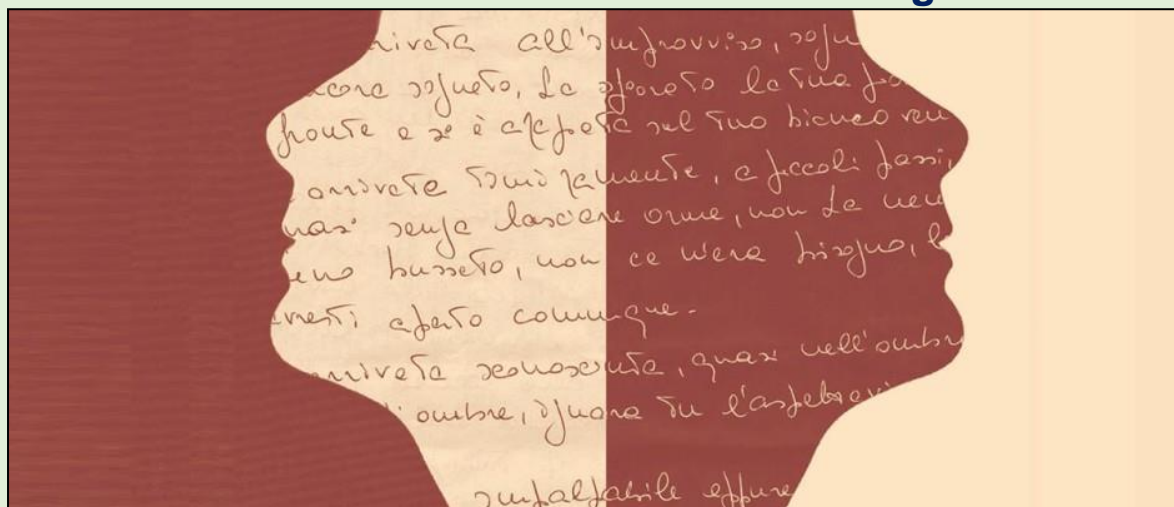 g
rivata all'improvviso, sognu
ncora sognato, ha sfiorato la tua
fronte e si è sul tuo bianco
arrivata timidamente, a piccoli passi,
uasi senza lasciare orme, non ha
eno bussato, non ce n'era bisogno,
vresti aperto comunque.
arrivata sconosciuta, quasi nell'ombra
ombre, ignara tu l'aspettavi
impalpabile eppure